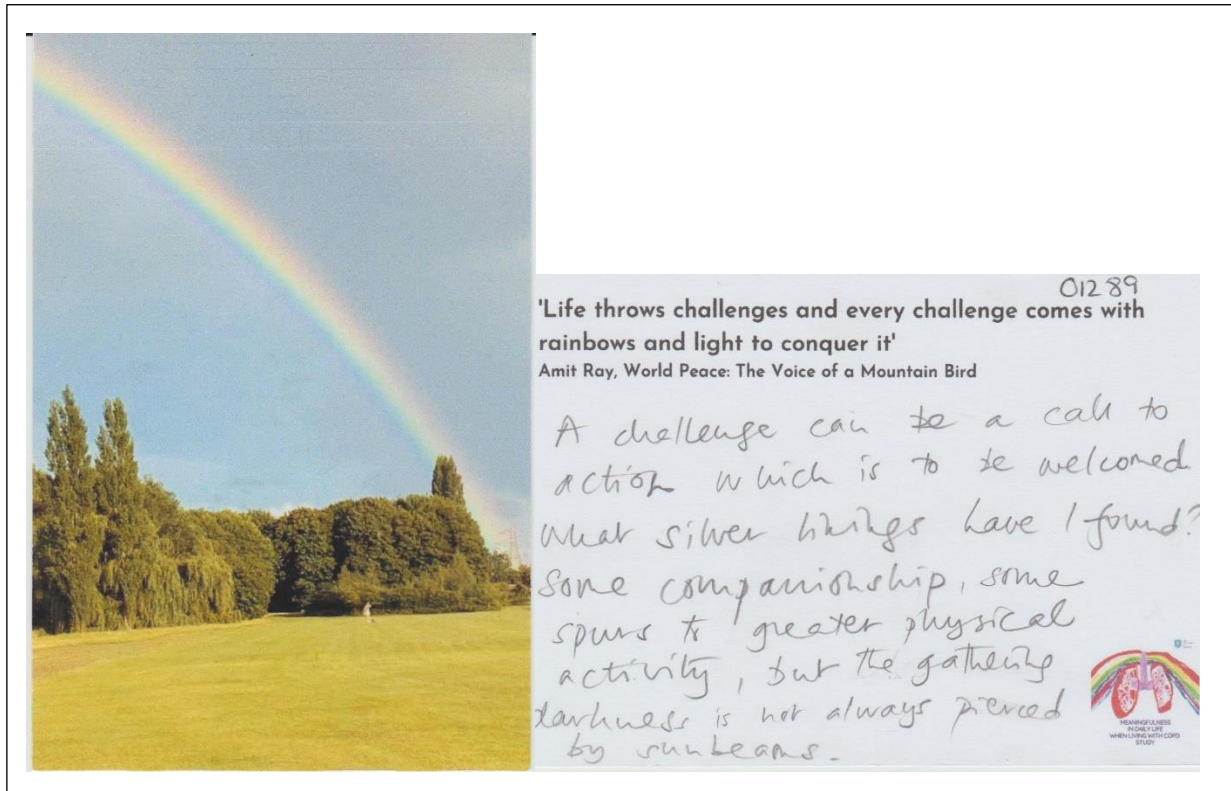 01289
'Life throws challenges and every challenge comes with
rainbows and light to conquer it'
Amit Ray, World Peace: The Voice of a Mountain Bird
A challenge can be a call to
action which is to be welcomed
what silver linings have I found?
some companionship, some
spurs to greater physical
activity, but the gathering
darkness is not always pierced
by sunbeams.
MEANINGFULNESS
IN DAILY LIFE
WHEN LIVING WITH COPD
STUDY